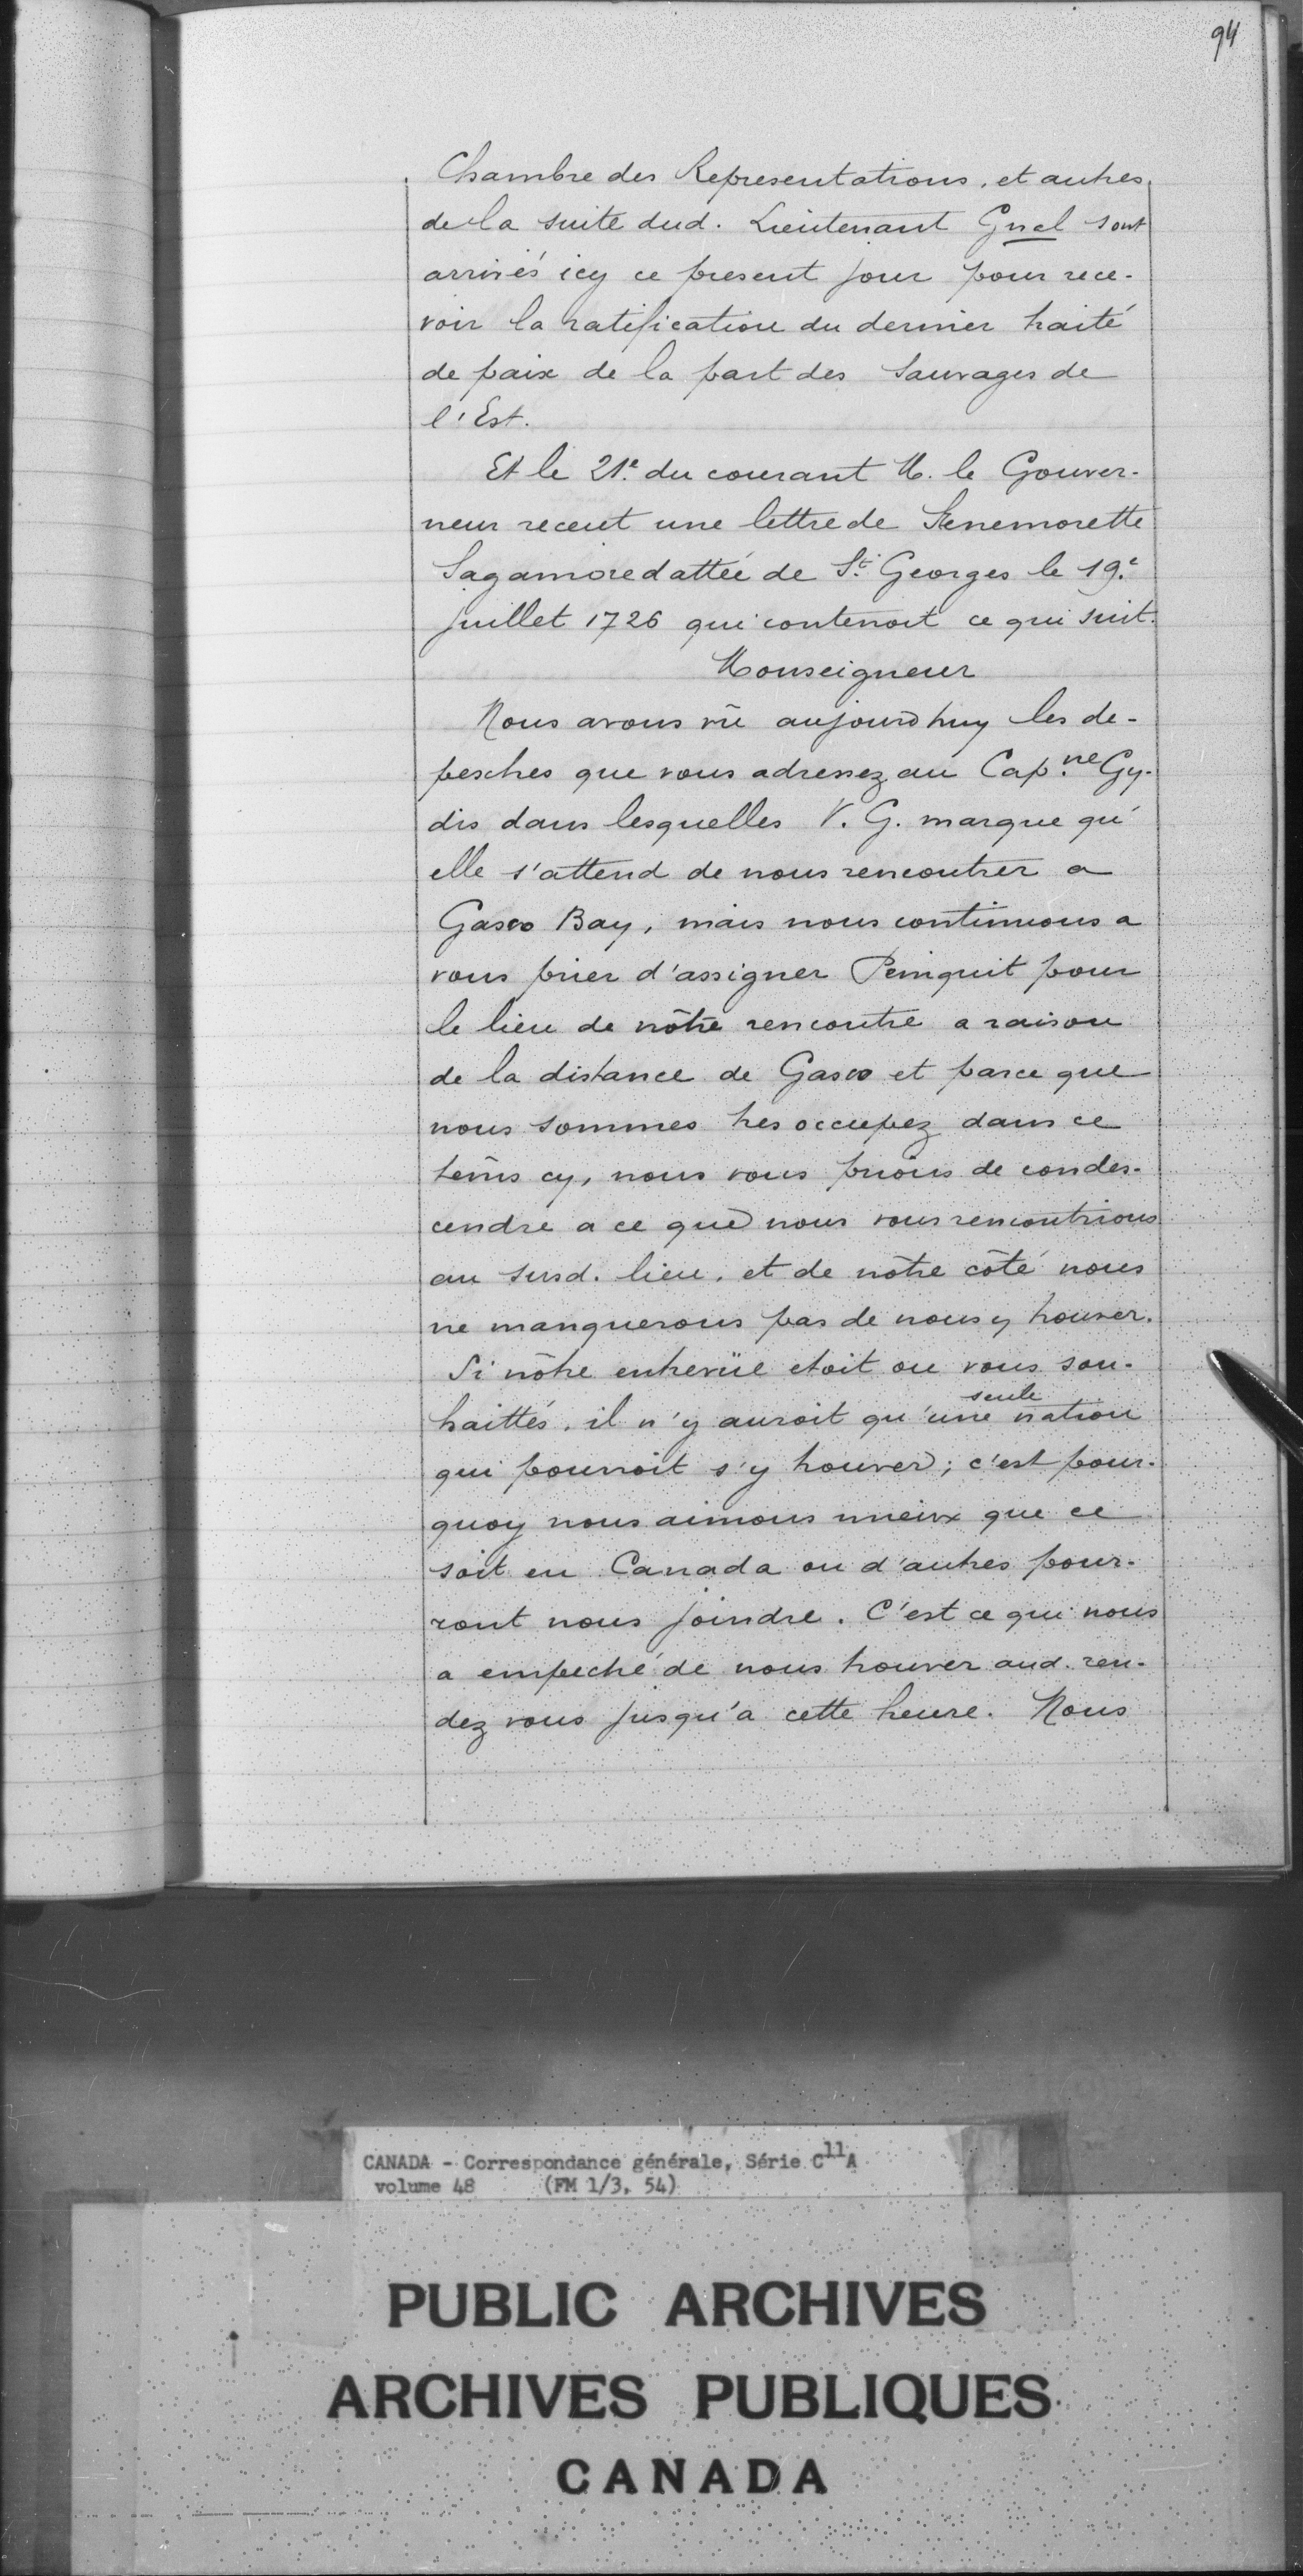 94
Chambre des Representations, et autres,
de la suite dud. Lieutenant Gnel sont
arrivés icy ce present jour pour rece-
voir la ratification du dernier traité
de paix de la part des Sauvages de
l'Est.
Et le 21e. du courant M. le Gouver-
neur receut une lettre de Wenemorette
Sagamore dattée de St. Georges le 19e.
juillet 1726 qui contenoit ce qui suit.
Monseigneur
Nous avons vû aujourdhuy les de-
pesches que vous adressez au Cap.ne Gy-
dis dans lesquelles V. G. marque qu'
elle s'attend de nous rencontrer a
Gasco Bay, mais nous continuons a
vous prier d'assigner Pemquit pour
le lieu de nôtre rencontre a raison
de la distance de Gasco et parce que
nous sommes tres occupez dans ce
tems cy, nous vous prions de condes-
cendre a ce que nous vous rencontrions
au susd. lieu, et de nôtre côté nous
ne manquerons pas de nous y trouver.
Si nôtre entrevüe etoit ou vous sou-
haittés, il n'y auroit qu'une seule nation
qui pourroit s'y trouver; c'est pour-
quoy nous aimons mieux que ce
soit en Canada ou d'autres pour-
ront nous joindre. C'est ce qui nous
a empeché de nous trouver aud. ren-
dez vous jusqu'a cette heure. Nous
CANADA - Correspondance générale, Série C11A
volume 48 (FM 1/3, 54)
PUBLIC ARCHIVES
ARCHIVES PUBLIQUES
CANADA